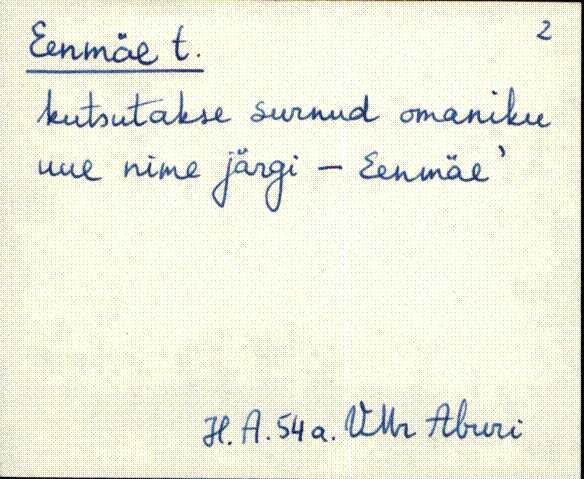 2
Eenmäe t.
kutsutakse surnud omaniku
uue nime järgi – Eenmäe'
H. A. 54 a. VMr Aburi